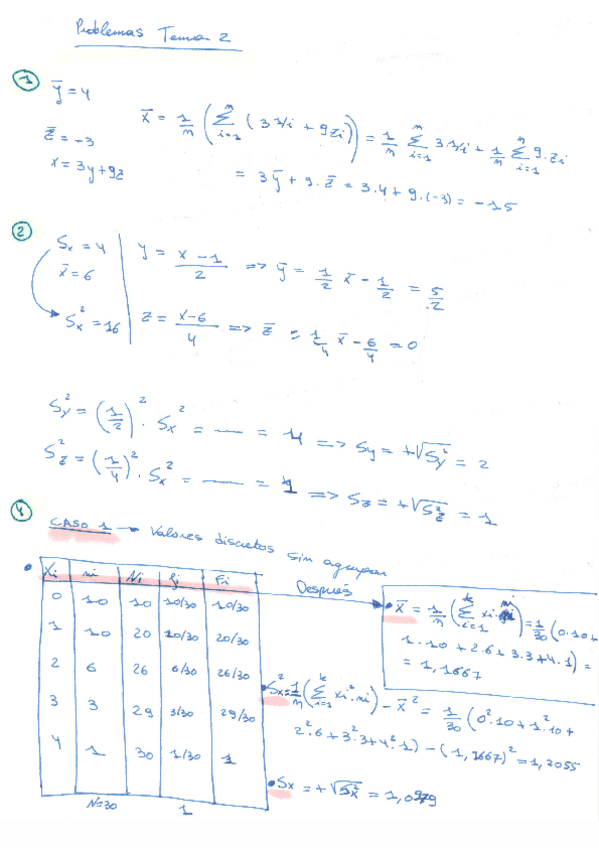 Problemas Tema 2
1
ȳ = 4
x̄ = 1/n (∑ i=1 n (3yi + 9zi)) = 1/n ∑ i=1 n 3yi + 1/n ∑ i=1 n 9·zi
z̄ = -3
x = 3y + 9z
= 3ȳ + 9·z̄ = 3·4 + 9·(-3) = -15
2
Sx = 4
x̄ = 6
Sx² = 16
y = (x-1)/2 => ȳ = 1/2 x̄ - 1/2 = 5/2
z = (x-6)/4 => z̄ = 1/4 x̄ - 6/4 = 0
Sy² = (1/2)² · Sx² = — = 4 => Sy = +√Sy² = 2
Sz² = (1/4)² · Sx² = — = 1 => Sz = +√Sz² = 1
4
CASO 1 → Valores discretos sin agrupar
Xi ni Ni fi Fi
0 10 10 10/30 10/30
1 10 20 10/30 20/30
2 6 26 6/30 26/30
3 3 29 3/30 29/30
4 1 30 1/30 1
N=30 1
Después
x̄ = 1/n (∑ i=1 k xi·ni) = 1/30 (0·10 +
1·10 + 2·6 + 3·3 + 4·1) =
= 1,1667
Sx² = 1/n (∑ i=1 k xi²·ni) - x̄² = 1/30 (0²·10 + 1²·10 +
2²·6 + 3²·3 + 4²·1) - (1,1667)² = 1,2055
Sx = +√Sx² = 1,0979